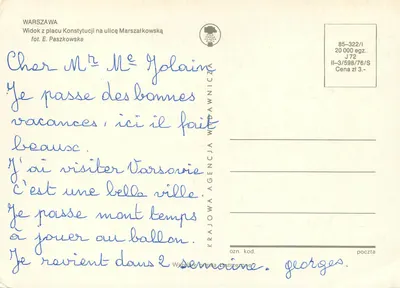 WARSZAWA
Widok z placu Konstytucji na ulicę Marszałkowską
fot. E. Paszkowska
85-322/I
20 000 egz.
J 72
II-3/598/76/S
Cena zł 3.-
KRAJOWA AGENCJA WYDAWNICZA
Cher Mr Me Jolain
Je passe des bonnes
vacances, ici il fait
beaux.
J'ai visiter Varsovie
c'est une bella ville.
Je passe mont temps
à jouer au ballon.
Je revient dans 2 semaine. georges.
kod
poczta